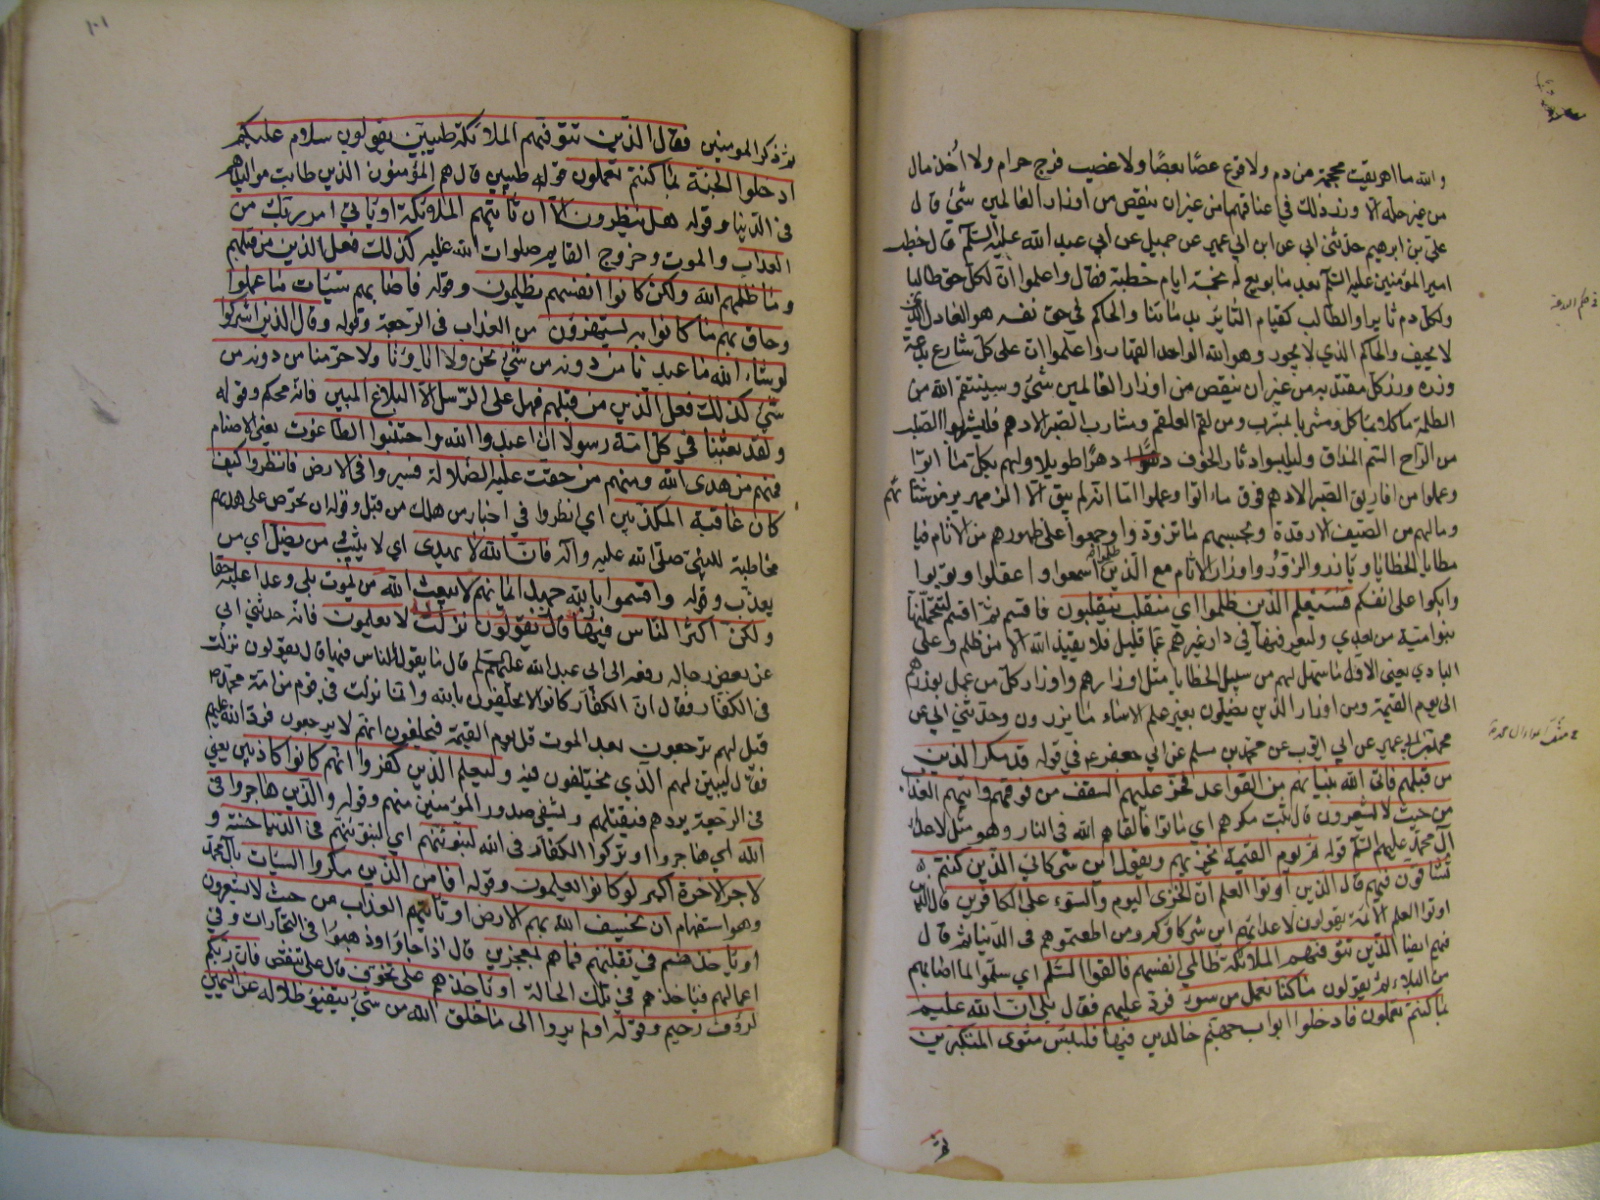 والله ما اهريقت محجمة من دم ولا قرع عصًا بعصًا ولا غصب فرج حرام ولا اُخذ مال
من غير حله الا وزر ذلك في اعناقهما من غير ان ينقص من اوزار العالمين شئ قال
علي بن ابرهيم حدثني ابي عن ابن ابي عمير عن جميل عن ابي عبد الله عليه السلم قال خطب
امير المؤمنين عليه السلم بعد ما بويع له بخمسة ايام خطبة فقال واعلموا ان لكل حق طالبا
ولكل دم ثايرا والطالب كقيام الثاير بدمائنا والحاكم في حق نفسه هو العادل الذي
لا يحيف والحاكم الذي لا يجور وهو الله الواحد القهار واعلموا ان على كل شارع بدعة
وزره ووزر كل مقتد به من غير ان ينقص من اوزار العاملين شئ وسينتقم الله من
الظلمة ماكلا بماكل ومشربا بمشرب ومن لقم العلقم ومشارب الصبر الادهم فليشربوا الصلب
من الراح السم المذاق وليلبسوا دثار الخوف دهرًا طويلا ولهم بكل ما اتوا
وعملوا من افاريق الصبر الادهم فوق ما اتوا وعملوا اما انه لم يبق الا الزمهرير من شتائهم
وما لهم من الصيف الا رقدة ويحبسهم ما تزودوا وجمعوا على ظهورهم من الاثام فيا
مطايا الخطايا ويا زور الزور واوزار الاثام مع الذين ظلموا اسمعوا واعقلوا وتوبوا
وابكوا على انفسكم فسيعلم الذين ظلموا اي منقلب ينقلبون فاقسم ثم اقسم لتتحملنها
بنو امية من بعدي وليعرفنها في دار غيرهم عما قليل فلا يبعد الله الا من ظلم وعلى
البادي يعني الاول ما سهل لهم من سبيل الخطايا مثل اوزارهم واوزار كل من عمل بوزرهم
الى يوم القيمة ومن اوزار الذين يضلون بغير علم الا ساء ما يزرون وحدثني ابي عن
محمد بن ابي عمير عن ابي ايوب عن محمد بن مسلم عن ابي جعفر ع في قوله قد مكر الذين
من قبلهم فاتى الله بنيانهم من القواعد فخر عليهم السقف من فوقهم واتيهم العذاب
من حيث لا يشعرون قال بيت مكرهم اي ماتوا فالقاهم الله في النار وهو مثل لاعداء
آل محمد عليهم السلم قوله ثم يوم القيمة يخزيهم ويقول اين شركائي الذين كنتم
تشاقون فيهم قال الذين اوتوا العلم ان الخزى اليوم والسوء على الكافرين قال الذين
اوتوا العلم الائمة يقولون لاعدائهم اين شركاؤكم ومن اطعتموهم في الدنيا ثم قال
فيهم ايضا الذين تتوفيهم الملائكة ظالمي انفسهم فالقوا السلم اي سلموا لما اصابهم
من البلاء ثم يقولون ما كنا نعمل من سوء فرد عليهم فقال بلى ان الله عليم
بما كنتم تعملون فادخلوا ابواب جهنم خالدين فيها فلبئس مثوى المتكبرين
ثم
١٠١
ثم ذكر المومنين فقال الذين تتوفيهم الملائكة طيبين يقولون سلام عليكم
ادخلوا الجنة بما كنتم تعملون قوله طيبين قال هم المؤمنون الذين طابت مواليدهم
في الدنيا وقوله هل ينظرون الا ان تاتيهم الملائكة او ياتي امر ربك من
العذاب والموت وخروج القايم صلوات الله عليه كذلك فعل الذين من قبلهم
وما ظلمهم الله ولكن كانوا انفسهم يظلمون وقوله فاصابهم سيئات ما عملوا
وحاق بهم ما كانوا به يستهزؤن من العذاب في الرجعة وقوله وقال الذين اشركوا
لو شاء الله ما عبدنا من دونه من شئ نحن ولا اباؤنا ولا حرمنا من دونه من
شئ كذلك فعل الذين من قبلهم فهل على الرسل الا البلاغ المبين فانه محكم وقوله
ولقد بعثنا في كل امة رسولا ان اعبدوا الله واجتنبوا الطاغوت يعني الاصنام
فمنهم من هدى الله ومنهم من حقت عليه الضلالة فسيروا في الارض فانظروا كيف
كان عاقبة المكذبين اي انظروا في اخبار من هلك من قبل وقوله ان تحرص على هديهم
مخاطبة للنبي صلى الله عليه وآله فان الله لا يهدى اي لا يثيب من يضل اي من
يعذب وقوله واقسموا بالله جهد ايمانهم لا يبعث الله من يموت بلى وعدا عليه حقا
ولكن اكثر الناس لا يعلمون فانه حدثني ابي
عن بعض رجاله رفعه الى ابي عبد الله عليه السلم قال ما يقول الناس فيها قال يقولون نزلت
في الكفار فقال ان الكفار كانوا لا يحلفون بالله وانما نزلت في قوم من امة محمد ص
قيل لهم ترجعون بعد الموت قبل يوم القيمة فيحلفون انهم لا يرجعون فرد الله عليهم
فقال ليبين لهم الذي يختلفون فيه وليعلم الذين كفروا انهم كانوا كاذبين يعني
في الرجعة يردهم فيقتلهم ويشفي صدور المؤمنين منهم وقوله والذين هاجروا في
الله اي هاجروا وتركوا الكفار في الله لنبوئنهم اي لنبوئنهم في الدنيا حسنة و
لاجر الاخرة اكبر لو كانوا يعلمون وقوله افامن الذين مكروا السيئات بآل محمد
وهو استفهام ان يخسف الله بهم الارض او ياتيهم العذاب من حيث لا يشعرون
او ياخذهم في تقلبهم فما هم بمعجزين قال اذا جاؤا وذهبوا في التجارات وفي
اعمالهم فياخذهم في تلك الحالة او ياخذهم على تخوف قال على تيقظ فان ربكم
لرؤف رحيم وقوله اولم يروا الى ما خلق الله من شئ يتفيؤ ظلاله عن اليمين